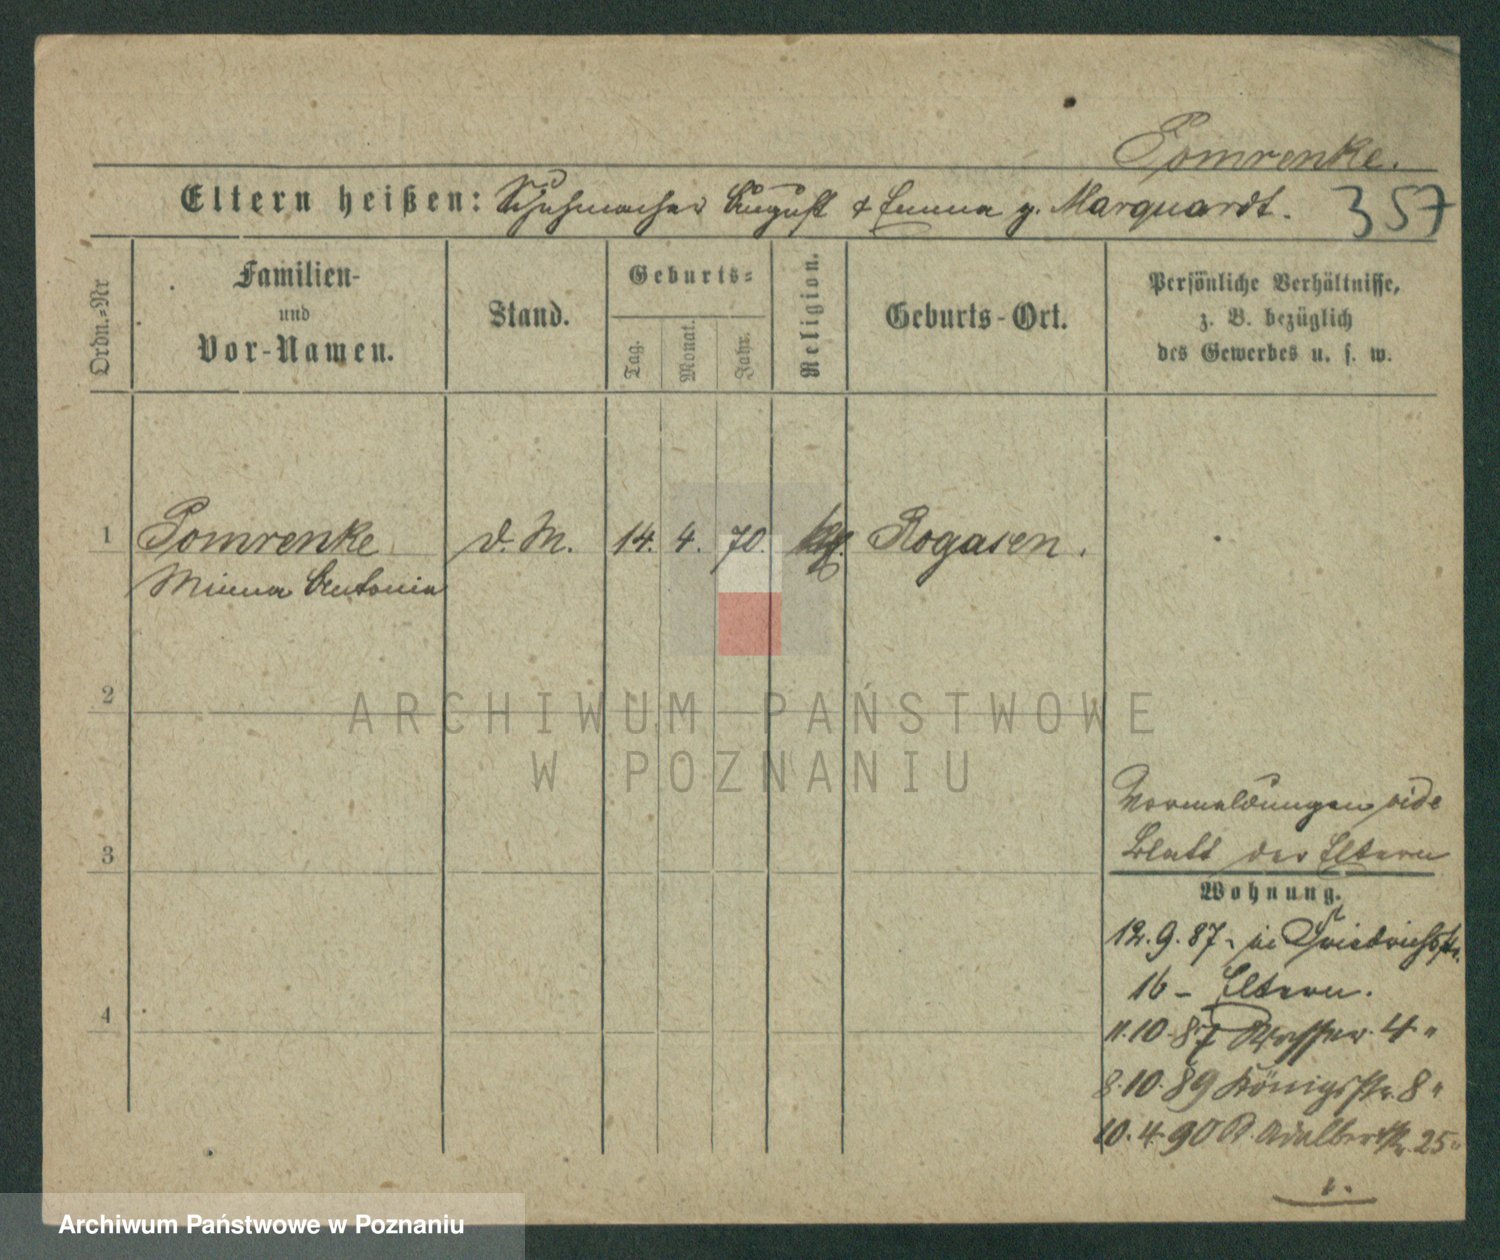 Pomrenke.
Eltern heißen: Schuhmacher August & Emma g. Marquardt. 357
Ordn.-Nr
Familien-
und
Vor-Namen.
Stand.
Geburts-
Tag.
Monat.
Jahr.
Religion.
Geburts-Ort.
Persönliche Verhältnisse,
z. B. bezüglich
des Gewerbes u. s. w.
1 Pomrenke d. M. 14. 4. 70. Rogasen.
Minna Antonia
2
3
4
Vormeldungen vide
Blatt der Eltern
Wohnung.
12. 9. 87 - in Friedrichstr.
16 - Eltern.
11. 10. 87 4 "
8. 10. 89 Königsstr. 8 "
10. 4. 90 Adalbertstr. 25 "
ARCHIWUM PAŃSTWOWE
W POZNANIU
Archiwum Państwowe w Poznaniu